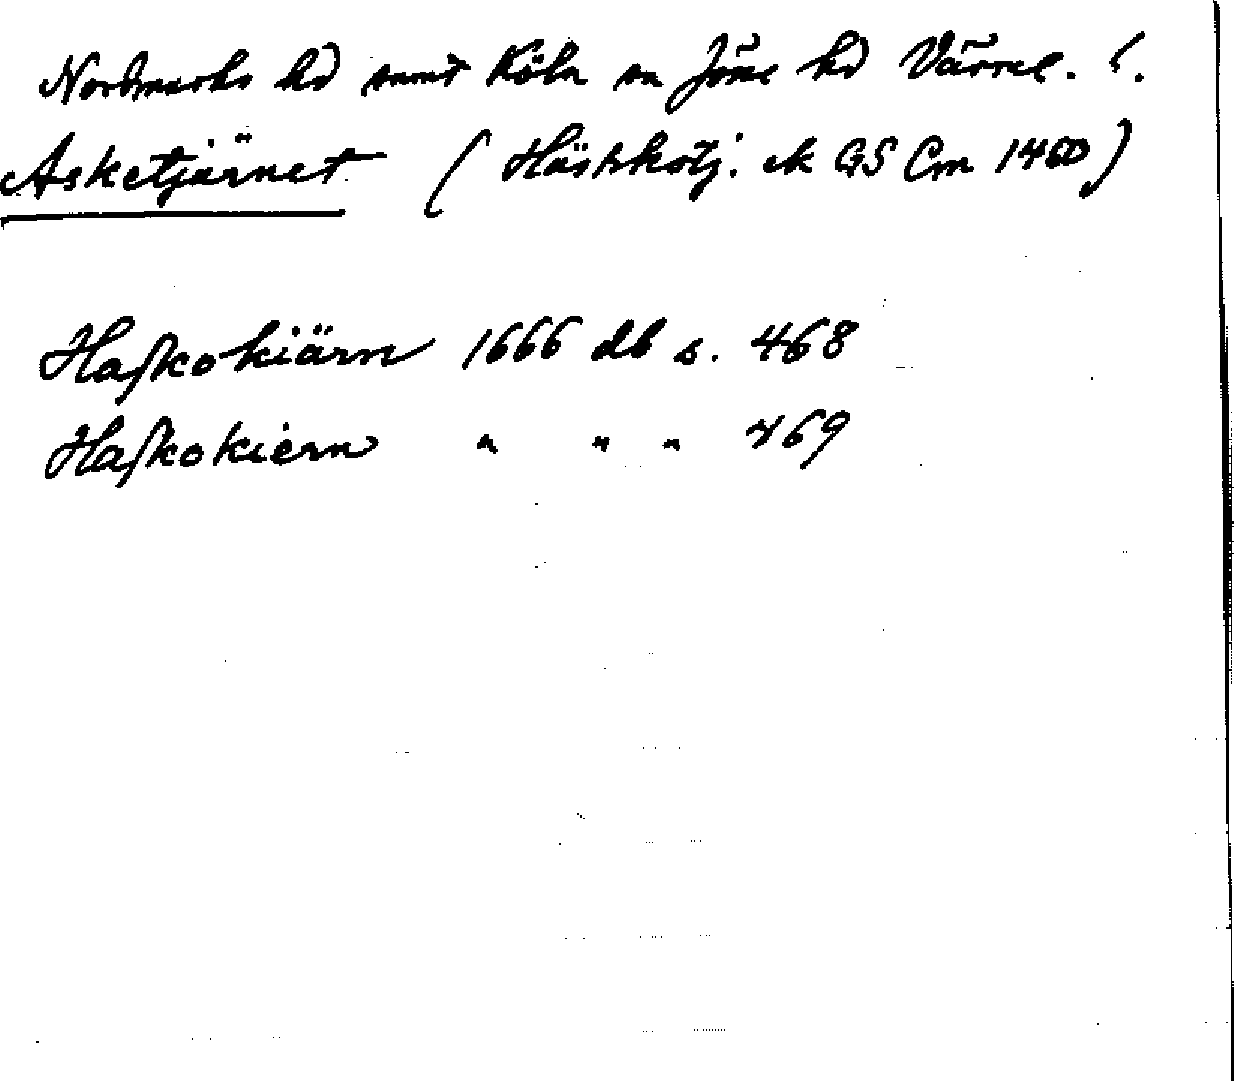 Nordmarks hd samt Köla sn Jösse hd Värml. l.
Asketjärnet (Hästskotj. ek GS Cm 1460)
Haskokiärn 1666 db s. 468
Haskokiern " " " 469